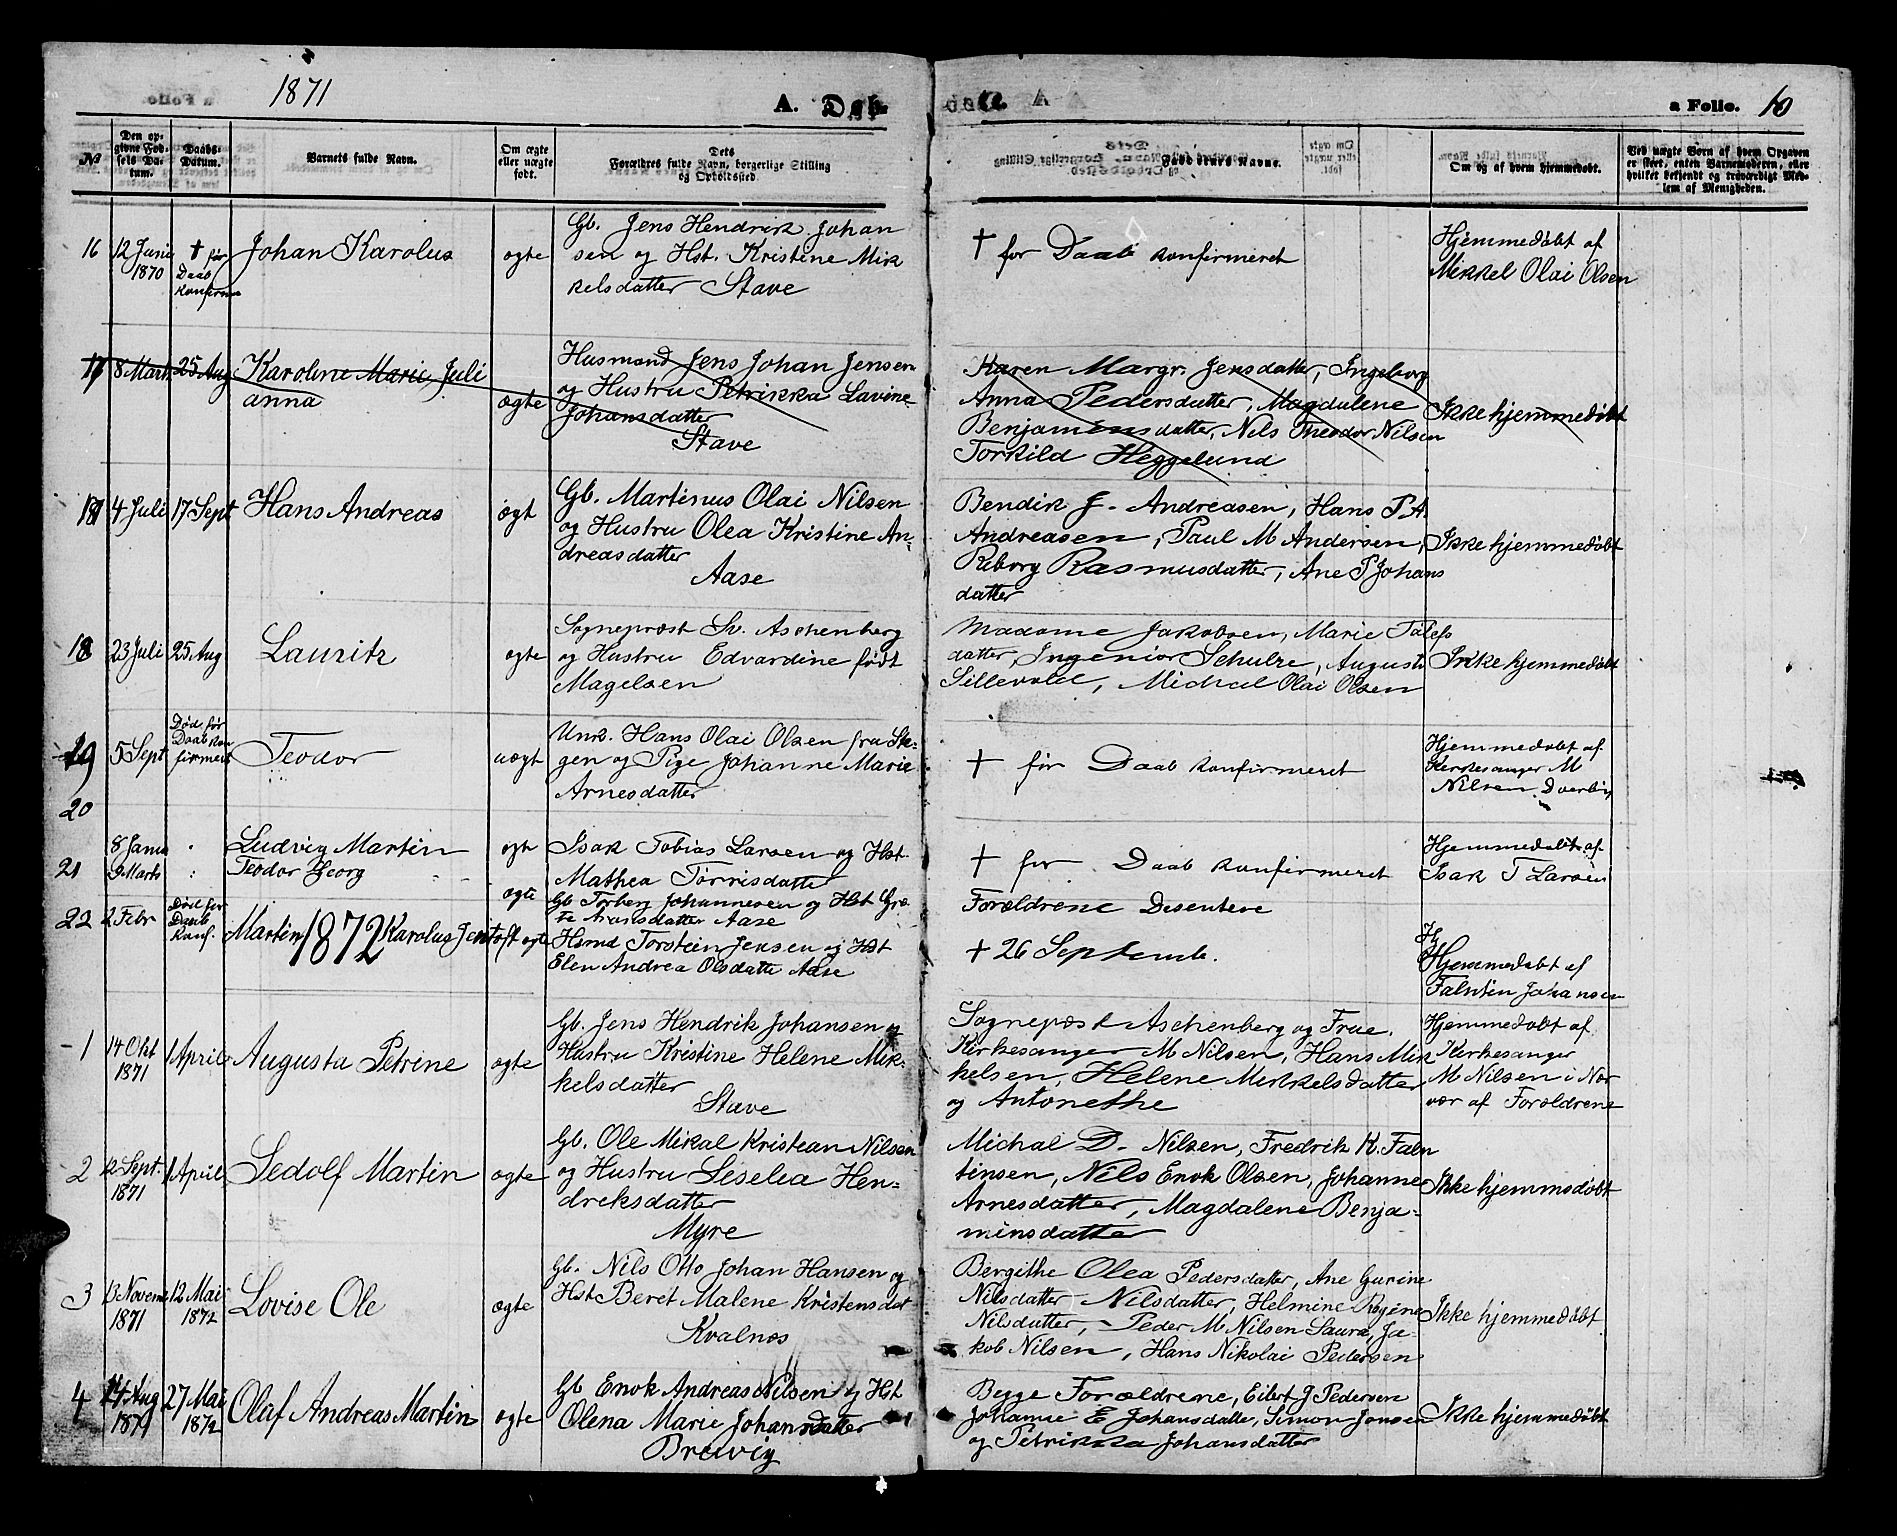 1871
A. Døb.
A.
a Folio. 10
№
Den opgivne Fødsels Datum.
Daabs-Datum.
Barnets fulde Navn.
Om ægte eller uægte født.
Dets Forældres fulde Navn, borgerlige Stilling og Opholdssted.
Fadderne Navne.
Om og af hvem hjemmedøbt.
Ved uægte Børn af hvem Opgaven er skeet, enten Barnemoderen, eller hvilket bekjendt og troværdigt Medlem af Menigheden.
16 12 Juni 1870 † før Daab konfirm Johan Karolus ægte
Gb. Jens Hendrik Johan
sen og Hst. Kristine Mik
kelsdatter Stave
† før Daab konfirmeret
Hjemmedøbt af
Mikkel Olai Olsen
17 8 Marts 25 Aug Karoline Marie Juli
anna ægte
Husmand Jens Johan Jensen
og Hustru Petrikka Lavine
Johansdatter
Stave
Karen Margr. Jensdatter, Ingeborg
Anna Pedersdatter, Magdalene
Benjaminsdatter, Nils Theodor Nilsen
Torkild Heggelund
Ikke hjemmedøbt
17 4 Juli 17 Sept Hans Andreas ægt
Gb. Martinus Olai Nilsen
og Hustru Olea Kristine An-
dreasdatter
Aase
Bendik J. Andreasen, Hans P.A.
Andreasen, Paul M Andersen,
Reborg Rasmusdatter, Ane P Johans
datter
Ikke hjemmedøbt
18 23 Juli 25 Aug Lauritz ægte
Sogneprest Sv. Aschenberg
og Hustru Edvardine født
Magelsen
Madame Jakobsen, Marie
datter, Ingeniør Schulze, August
Michael Olai Olsen
Ikke hjemmedøbt
19 5 Sept Død før Daab konfirmert Teodor uægt
Unk. Hans Olai Olsen fra Ste-
gen og Pige Johanne Marie
Arnesdatter
† før Daab konfirmeret
Hjemmedøbt af
Kirkesanger M
Nilsen Dverbrg
20
8 Janu Ludvig Martin ægt
Isak Tobias Larsen og Hst.
Mathea Torrisdatter
† før Daab konfirmeret
Hjemmedøbt af
Isak T Larsen
21 9 Marts Teodor Georg ægte
Gb Torberg Johannesen og Hst Gre
te Aronsdatter Aase
Forældrene Desentere
22 2 Febr Død før Daab Konf. Martin Karolus Jentoft ægte
1872
Hsmd Torstein Jensen og Hst
Elen Andrea Olsdatte Aase
† 26 Septemb.
Hj
Hjemmedøbt af
Falntin Johansen
1 14 Okt 1871 1 April Augusta Petrine ægte
Gb. Jens Hendrik Johansen og
Hustru Kristine Helene Mik-
kelsdatter
Stave
Sognepæst Aschenberg og Frue.
Kirkesanger M Nilsen, Hans Mik
kelsen, Helene Mikkelsdatter
og Antonethe
Hjemmedøbt af
Kirkesanger
M Nilsen i Nær
vær af Forældrene
2 12 Sept. 1871 1 April Sedolf Martin ægte
Gb. Ole Mikal Kristean Nilsen
og Hustru Seselea Hen-
dreksdatter
Myre
Michal D. Nilsen, Fredrik K. Faln
tinsen, Nils Enok Olsen, Johanne
Arnesdatter, Magdalene Benja-
minsdatter
Ikke hjemmsdøbt
3 13 Novem 1871 12 Mai 1872 Lovise Ole ægte
Gb. Nils Otto Johan Hansen og
Hst Beret Malene Kristensdat
Kvalnes
Bergithe Olea Pedersdatter, Ane Gurine
Nilsdatter Nilsdatter, Helmine Regine
Nilsdatter, Peder M Nilsen Saura, Ja-
kob Nilsen, Hans Nikolai Pedersen
Ikke hjemmedøbt
4 14 Aug 1871 27 Mai 1872 Olaf Andreas Martin ægte
Gb Enok Andreas Nilsen og Hst
Olena Marie Johansdatter
Breivig
Begge Forældrene, Eilert J Pedersen
Johanne E Johansdatte, Simon Jensen
og Petrikka Johansdatter
Ikke hjemmedøbt